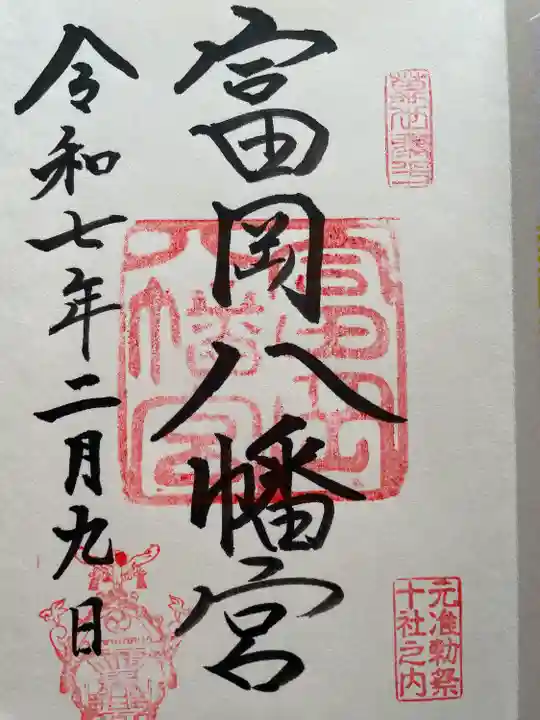 富岡八幡宮
令和七年二月九日
元准勅祭
十社之内